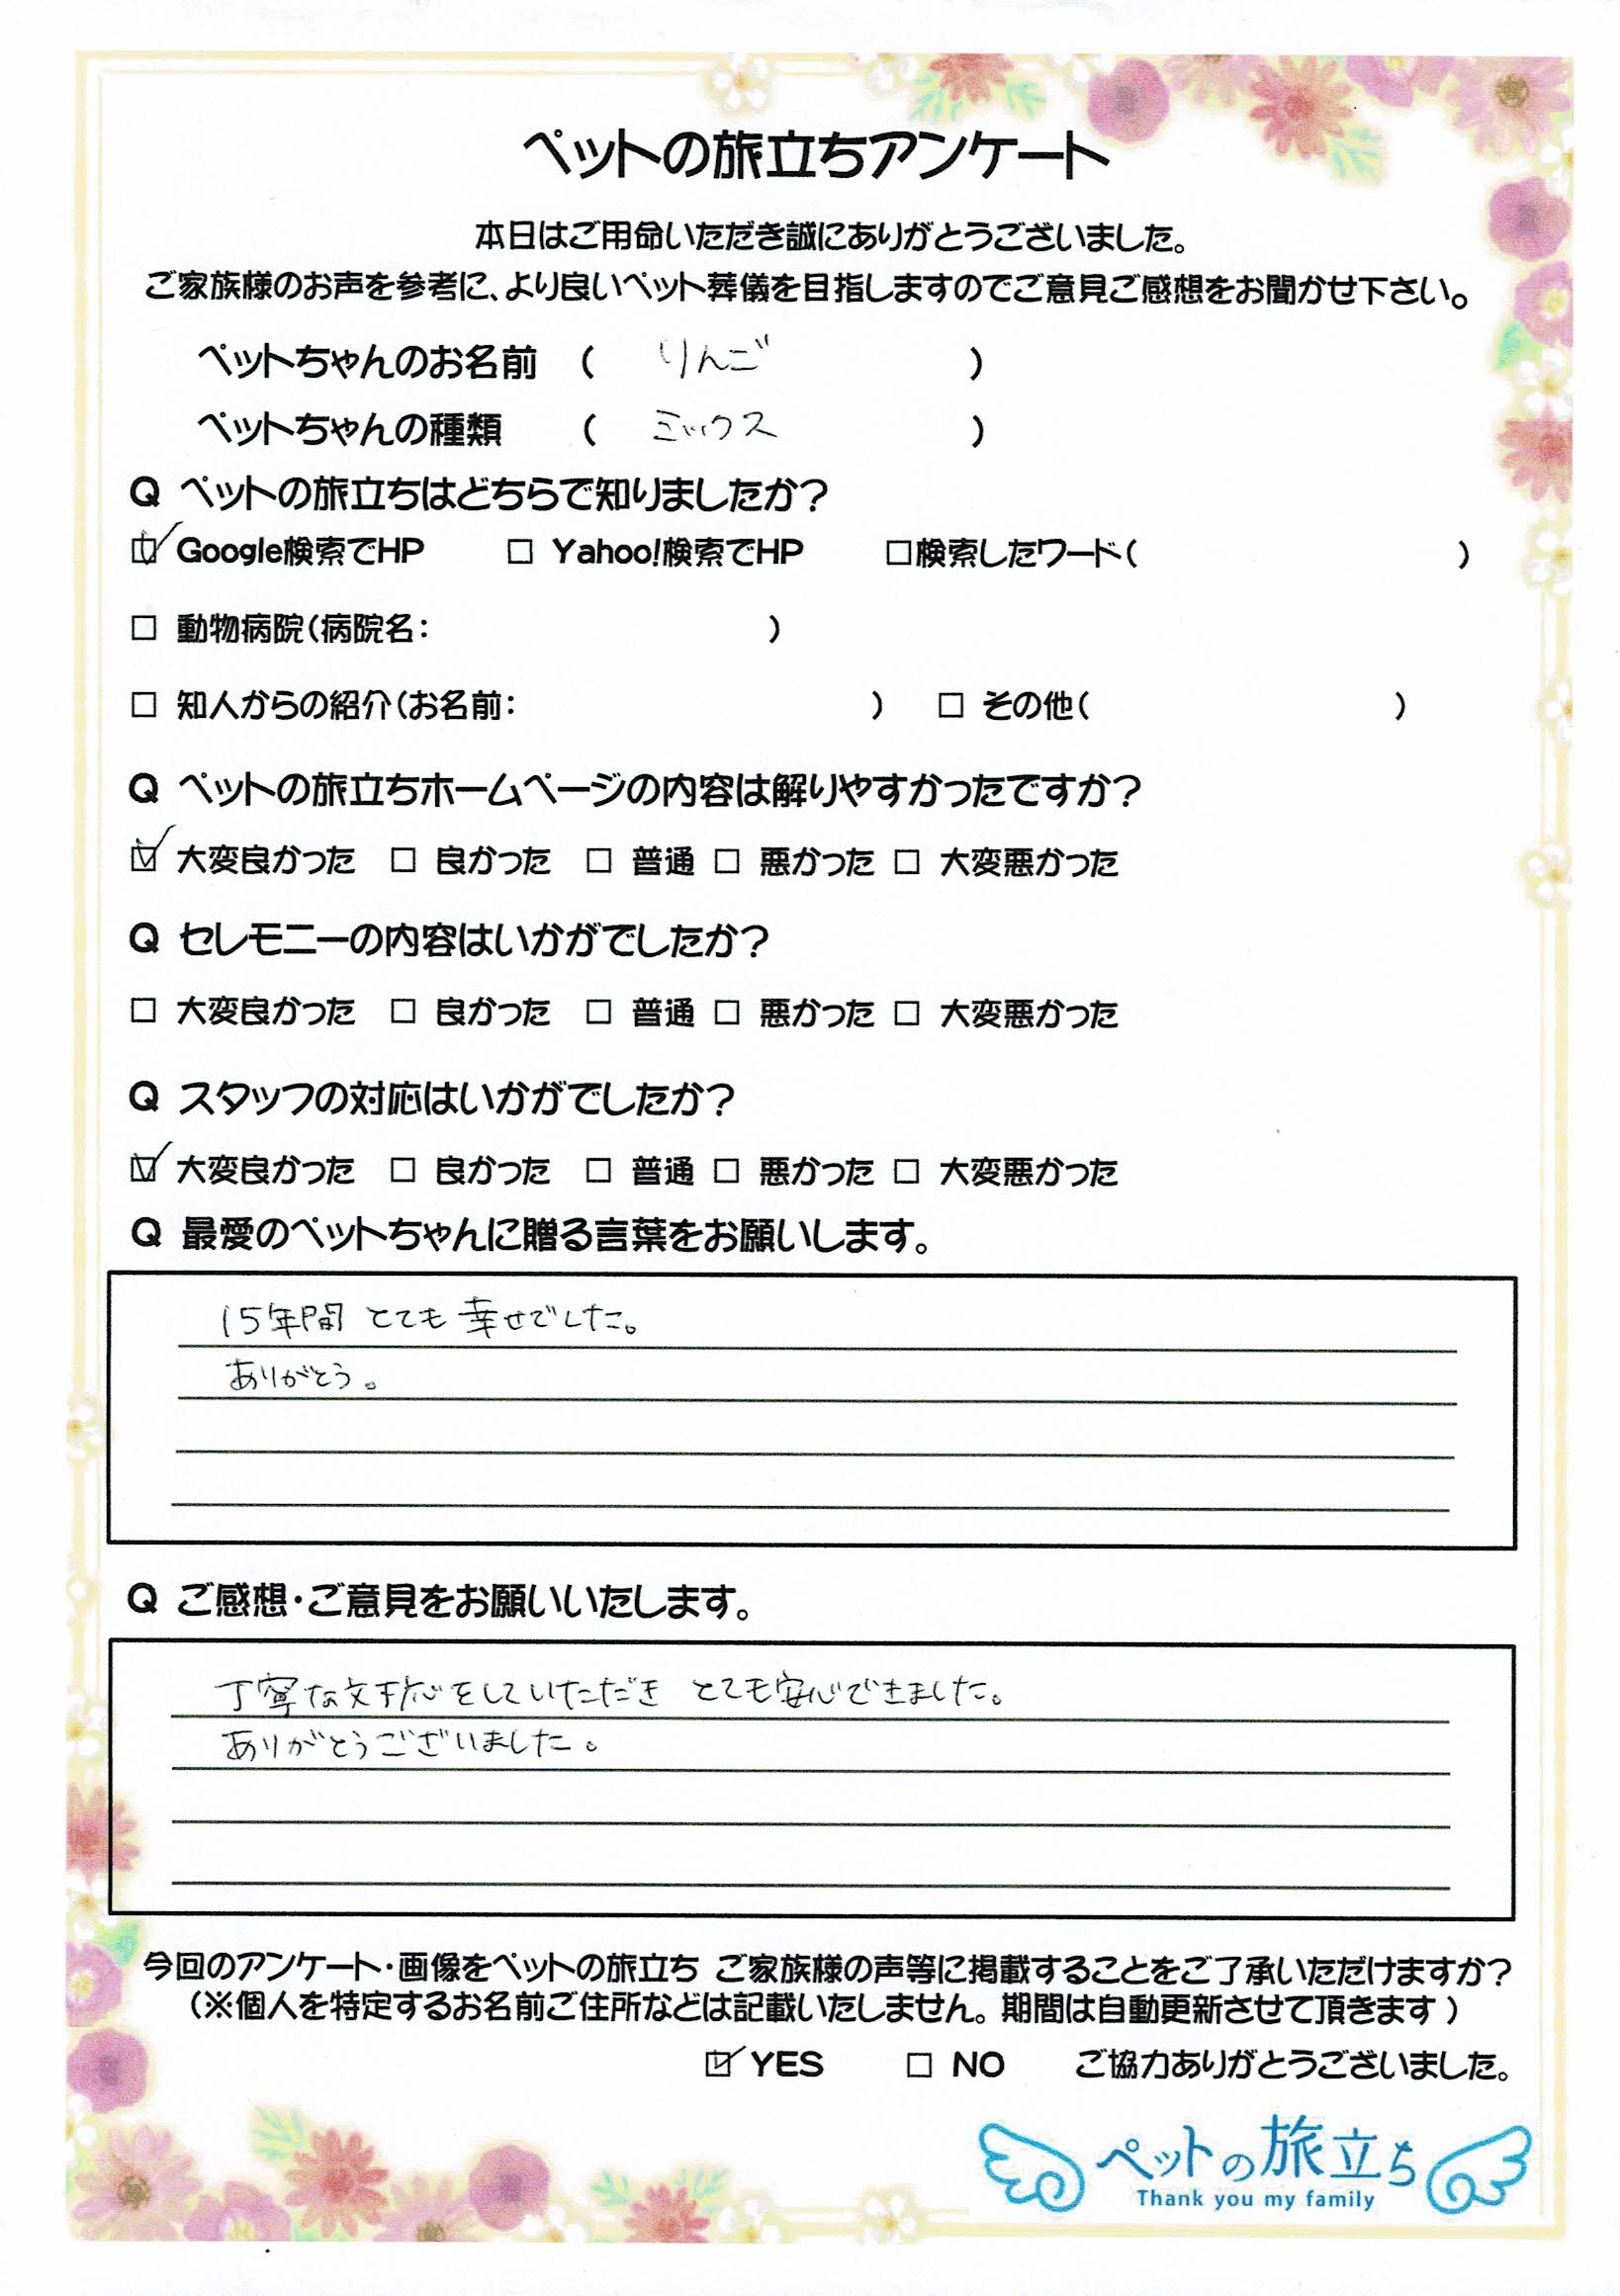 ペットの旅立ちアンケート
本日はご用命いただき誠にありがとうございました。
ご家族様のお声を参考に、より良いペット葬儀を目指しますのでご意見ご感想をお聞かせ下さい。
ペットちゃんのお名前 ( りんご )
ペットちゃんの種類 ( ミックス )
Q ペットの旅立ちはどちらで知りましたか？
☑ Google検索でHP □ Yahoo!検索でHP □検索したワード( )
□ 動物病院(病院名： )
□ 知人からの紹介(お名前： ) □ その他( )
Q ペットの旅立ちホームページの内容は解りやすかったですか？
☑ 大変良かった □ 良かった □ 普通 □ 悪かった □ 大変悪かった
Q セレモニーの内容はいかがでしたか？
□ 大変良かった □ 良かった □ 普通 □ 悪かった □ 大変悪かった
Q スタッフの対応はいかがでしたか？
☑ 大変良かった □ 良かった □ 普通 □ 悪かった □ 大変悪かった
Q 最愛のペットちゃんに贈る言葉をお願いします。
15年間 とても幸せでした。
ありがとう。
Q ご感想・ご意見をお願いいたします。
丁寧な対応をしていただき とても安心できました。
ありがとうございました。
今回のアンケート・画像をペットの旅立ち ご家族様の声等に掲載することをご了承いただけますか？
（※個人を特定するお名前ご住所などは記載いたしません。期間は自動更新させて頂きます）
☑ YES □ NO ご協力ありがとうございました。
ペットの旅立ち
Thank you my family